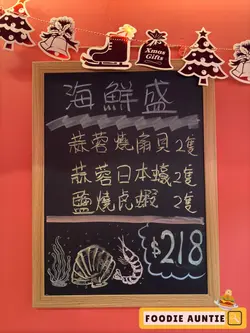 Xmas
Gifts
海鮮盛
蒜蓉燒扇貝 2隻
蒜蓉日本蠔 2隻
鹽燒虎蝦 2隻
$218
FOODIE AUNTIE